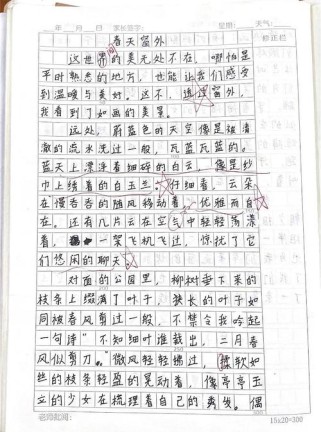 年 月 日 家长签字： 星期： 天气：
春天窗外 修正栏
这世界的美无处不在，哪怕是
平时熟悉的地方，也能让我们感受
到温暖与美好。这不，透过窗外，
我看到了如画的美景。
远处，蔚蓝色的天空像是被清
澈的流水洗过一般，瓦蓝瓦蓝的。
蓝天上漂浮着细碎的白云，像是纱
巾上绣着的白玉兰。仔细看，云朵
在慢吞吞的随风移动着，优雅而自
在。还有几片云在空气中轻轻荡漾
着，一架飞机飞过，惊扰了它
们悠闲的聊天。
对面的公园里，柳树垂下来的
枝条上缀满了叶子，狭长的叶子如
同被春风剪过一般，不禁令我吟起
一句诗“不知细叶谁裁出，二月春
风似剪刀。”微风轻轻拂过，柔软如
丝的枝条轻盈的晃动着，像亭亭玉
立的少女在梳理着自己的秀发。偶
老师批阅： 15x20=300